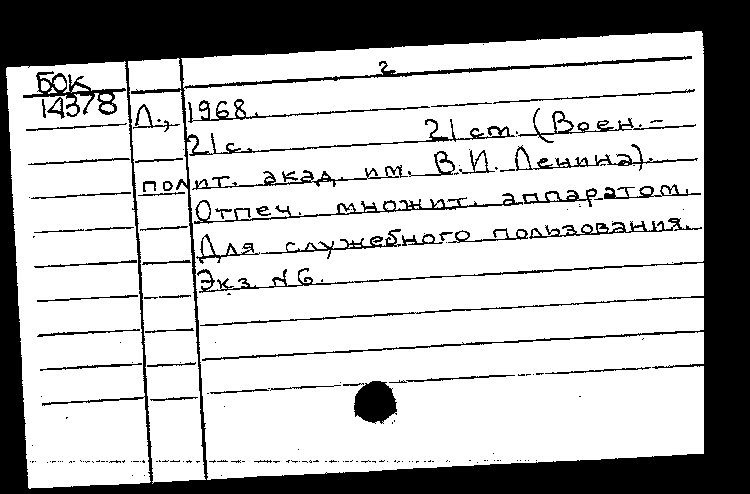 2
БОК
14378 Л., 1968.
21 с. 21 см. (Воен.-
полит. акад. им. В.И. Ленина).
Отпеч. множит. аппаратом.
Для служебного пользования.
Экз. №6.